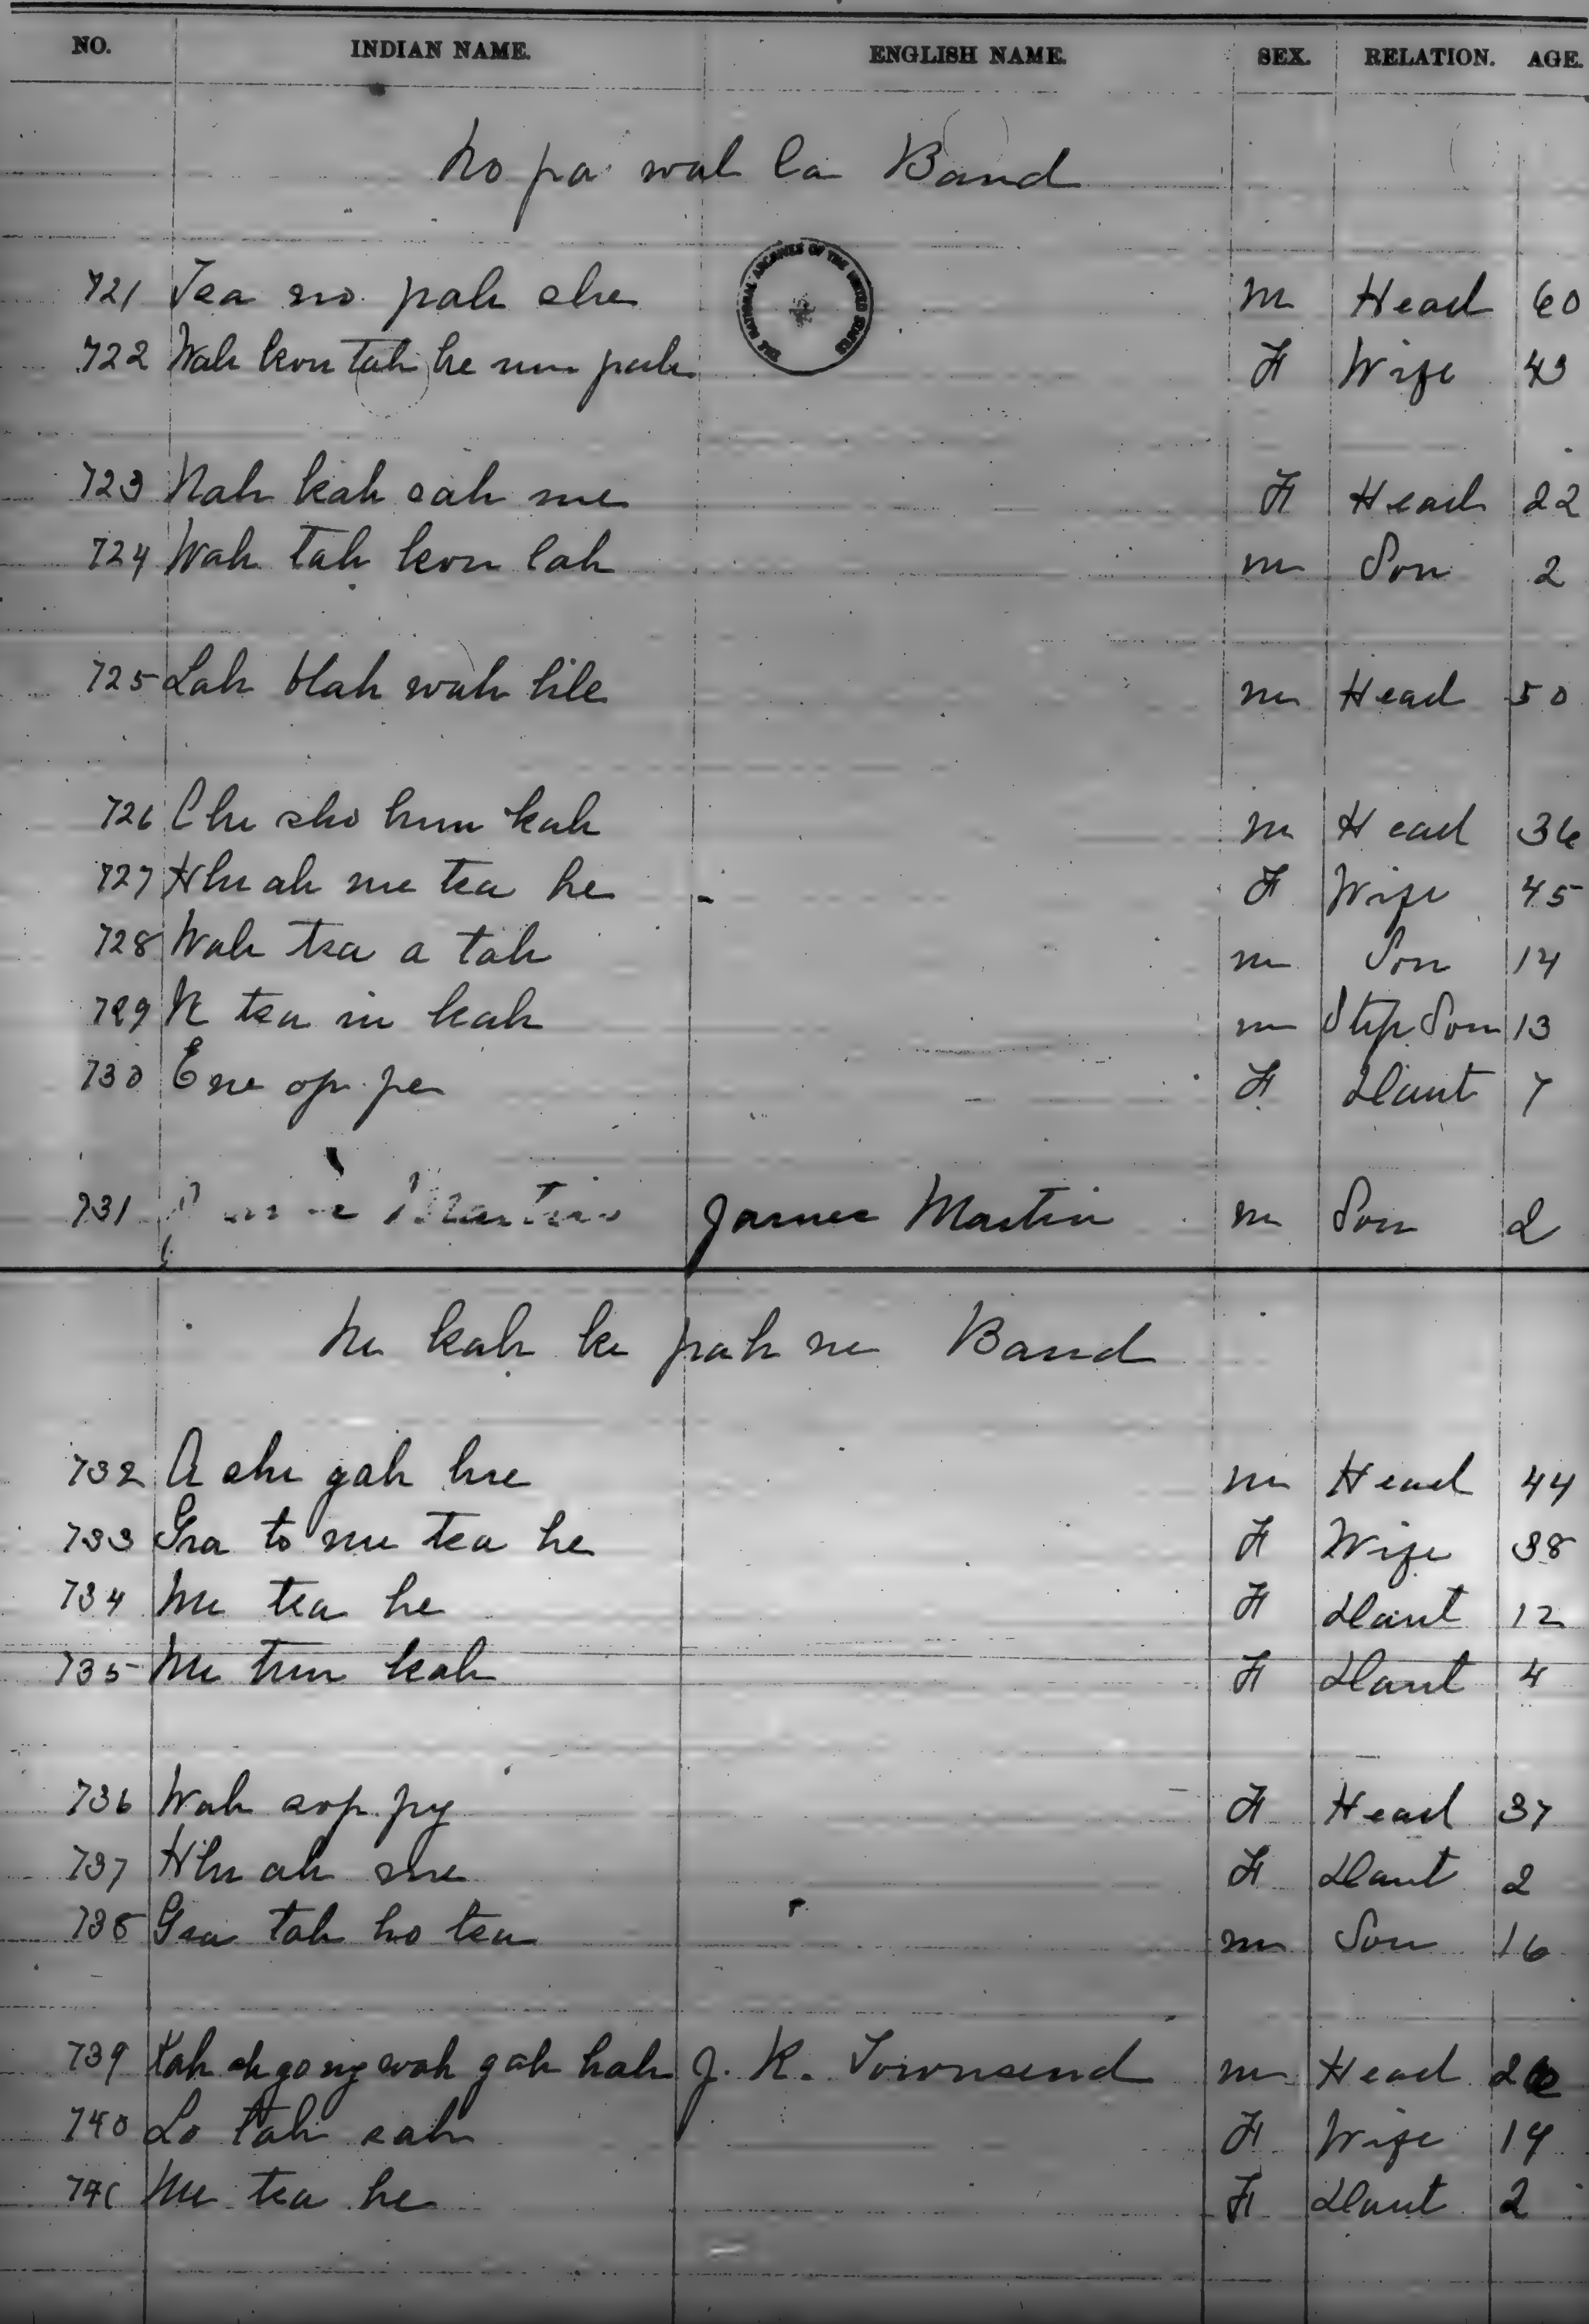 NO. INDIAN NAME. ENGLISH NAME. SEX. RELATION. AGE.
No pa wal la Band
THE NATIONAL ARCHIVES OF THE UNITED STATES
721 Tsa no pah she m Head 60
722 Wah kon tah he um pah F Wife 43
723 Nah kah sah me F Head 22
724 Wah tah kon lah m Son 2
725 Lah blah wah hile m Head 50
726 Che sho hun kah m Head 36
727 Hlu ah me tsa he F Wife 45
728 Wah tsa a tah m Son 14
729 N tsa in kah m Step Son 13
730 E ne op pe F Daut 7
731 James Martin m Son 2
Ne kah ke pah ne Band
732 A she gah hre m Head 44
733 Gra to me tsa he F Wife 38
734 Me tsa he F Daut 12
735 Me tun kah F Daut 4
736 Wah sop py F Head 37
737 Hlu ah me F Daut 2
738 Gra tah ho tsa m Son 16
739 Kah sh go ny wah gah hah J. K. Townsend m Head
740 Lo tah sah F Wife 19
741 Me tsa he F Daut 2